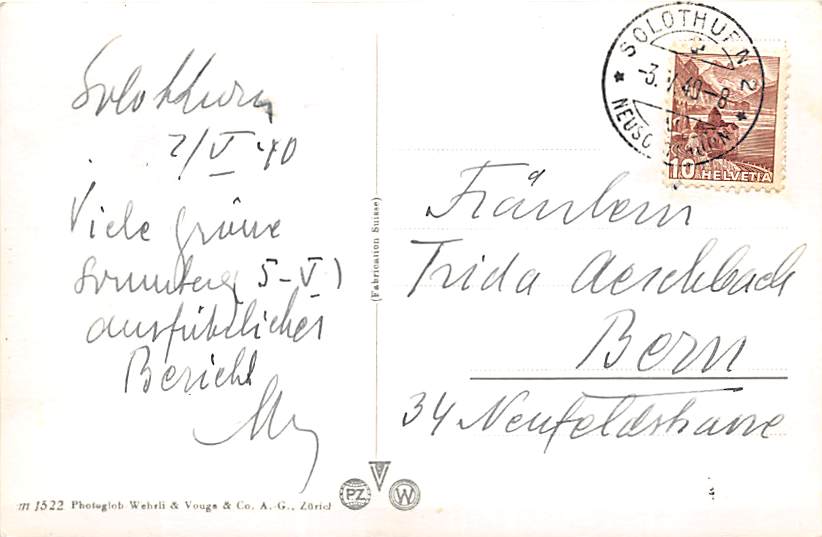 Solothurn
2/V 40
Viele Grüsse
Sonntag (5-V)
ausführlicher
Bericht
(Fabrication Suisse)
SOLOTHURN 2
-3.V.40-8
10 HELVETIA
Fräulein
Frida Aeschbach
Bern
34 Neufeldstrasse
PZ
W
1522 Photoglob Wehrli & Vouga & Co. A.-G., Zürich